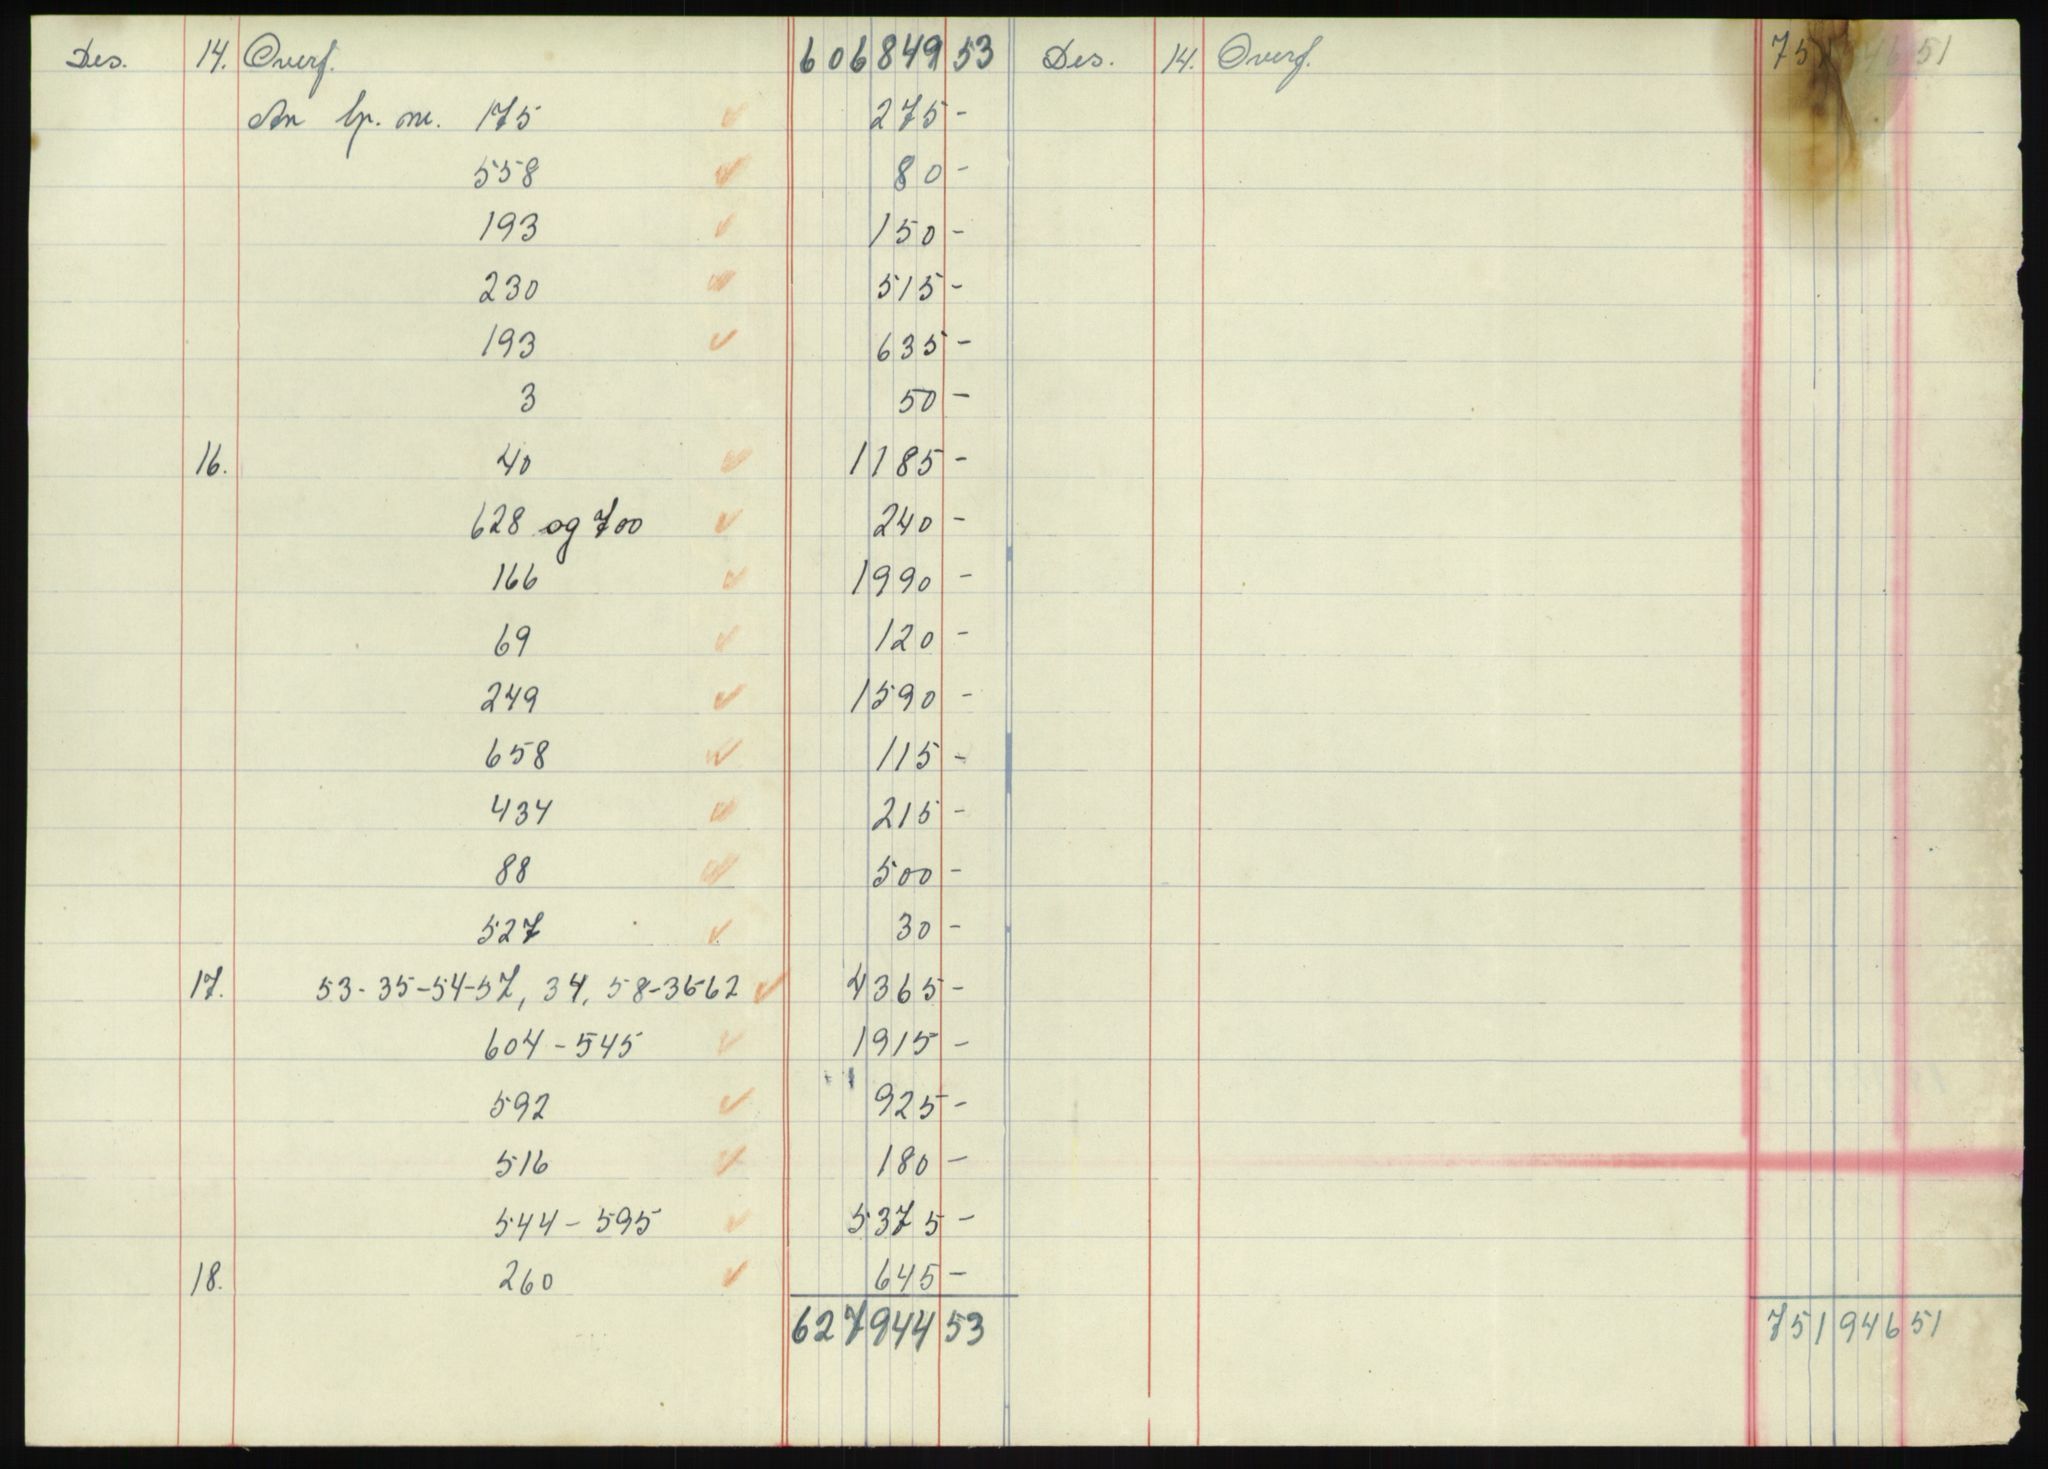 Des. 14. Overf. 606849 53
An lp. nr. 175 275 -
558 80 -
193 150 -
230 515 -
193 635 -
3 50 -
16. 40 1185 -
628 og 700 240 -
166 1990 -
69 120 -
249 1590 -
658 115 -
434 215 -
88 500 -
527 30 -
17. 53-35-54-57, 34, 58-36-62 4365 -
604-545 1915 -
592 925 -
516 180 -
544-595 5375 -
18. 260 645 -
627944 53
Des. 14. Overf. 751946 51
751946 51